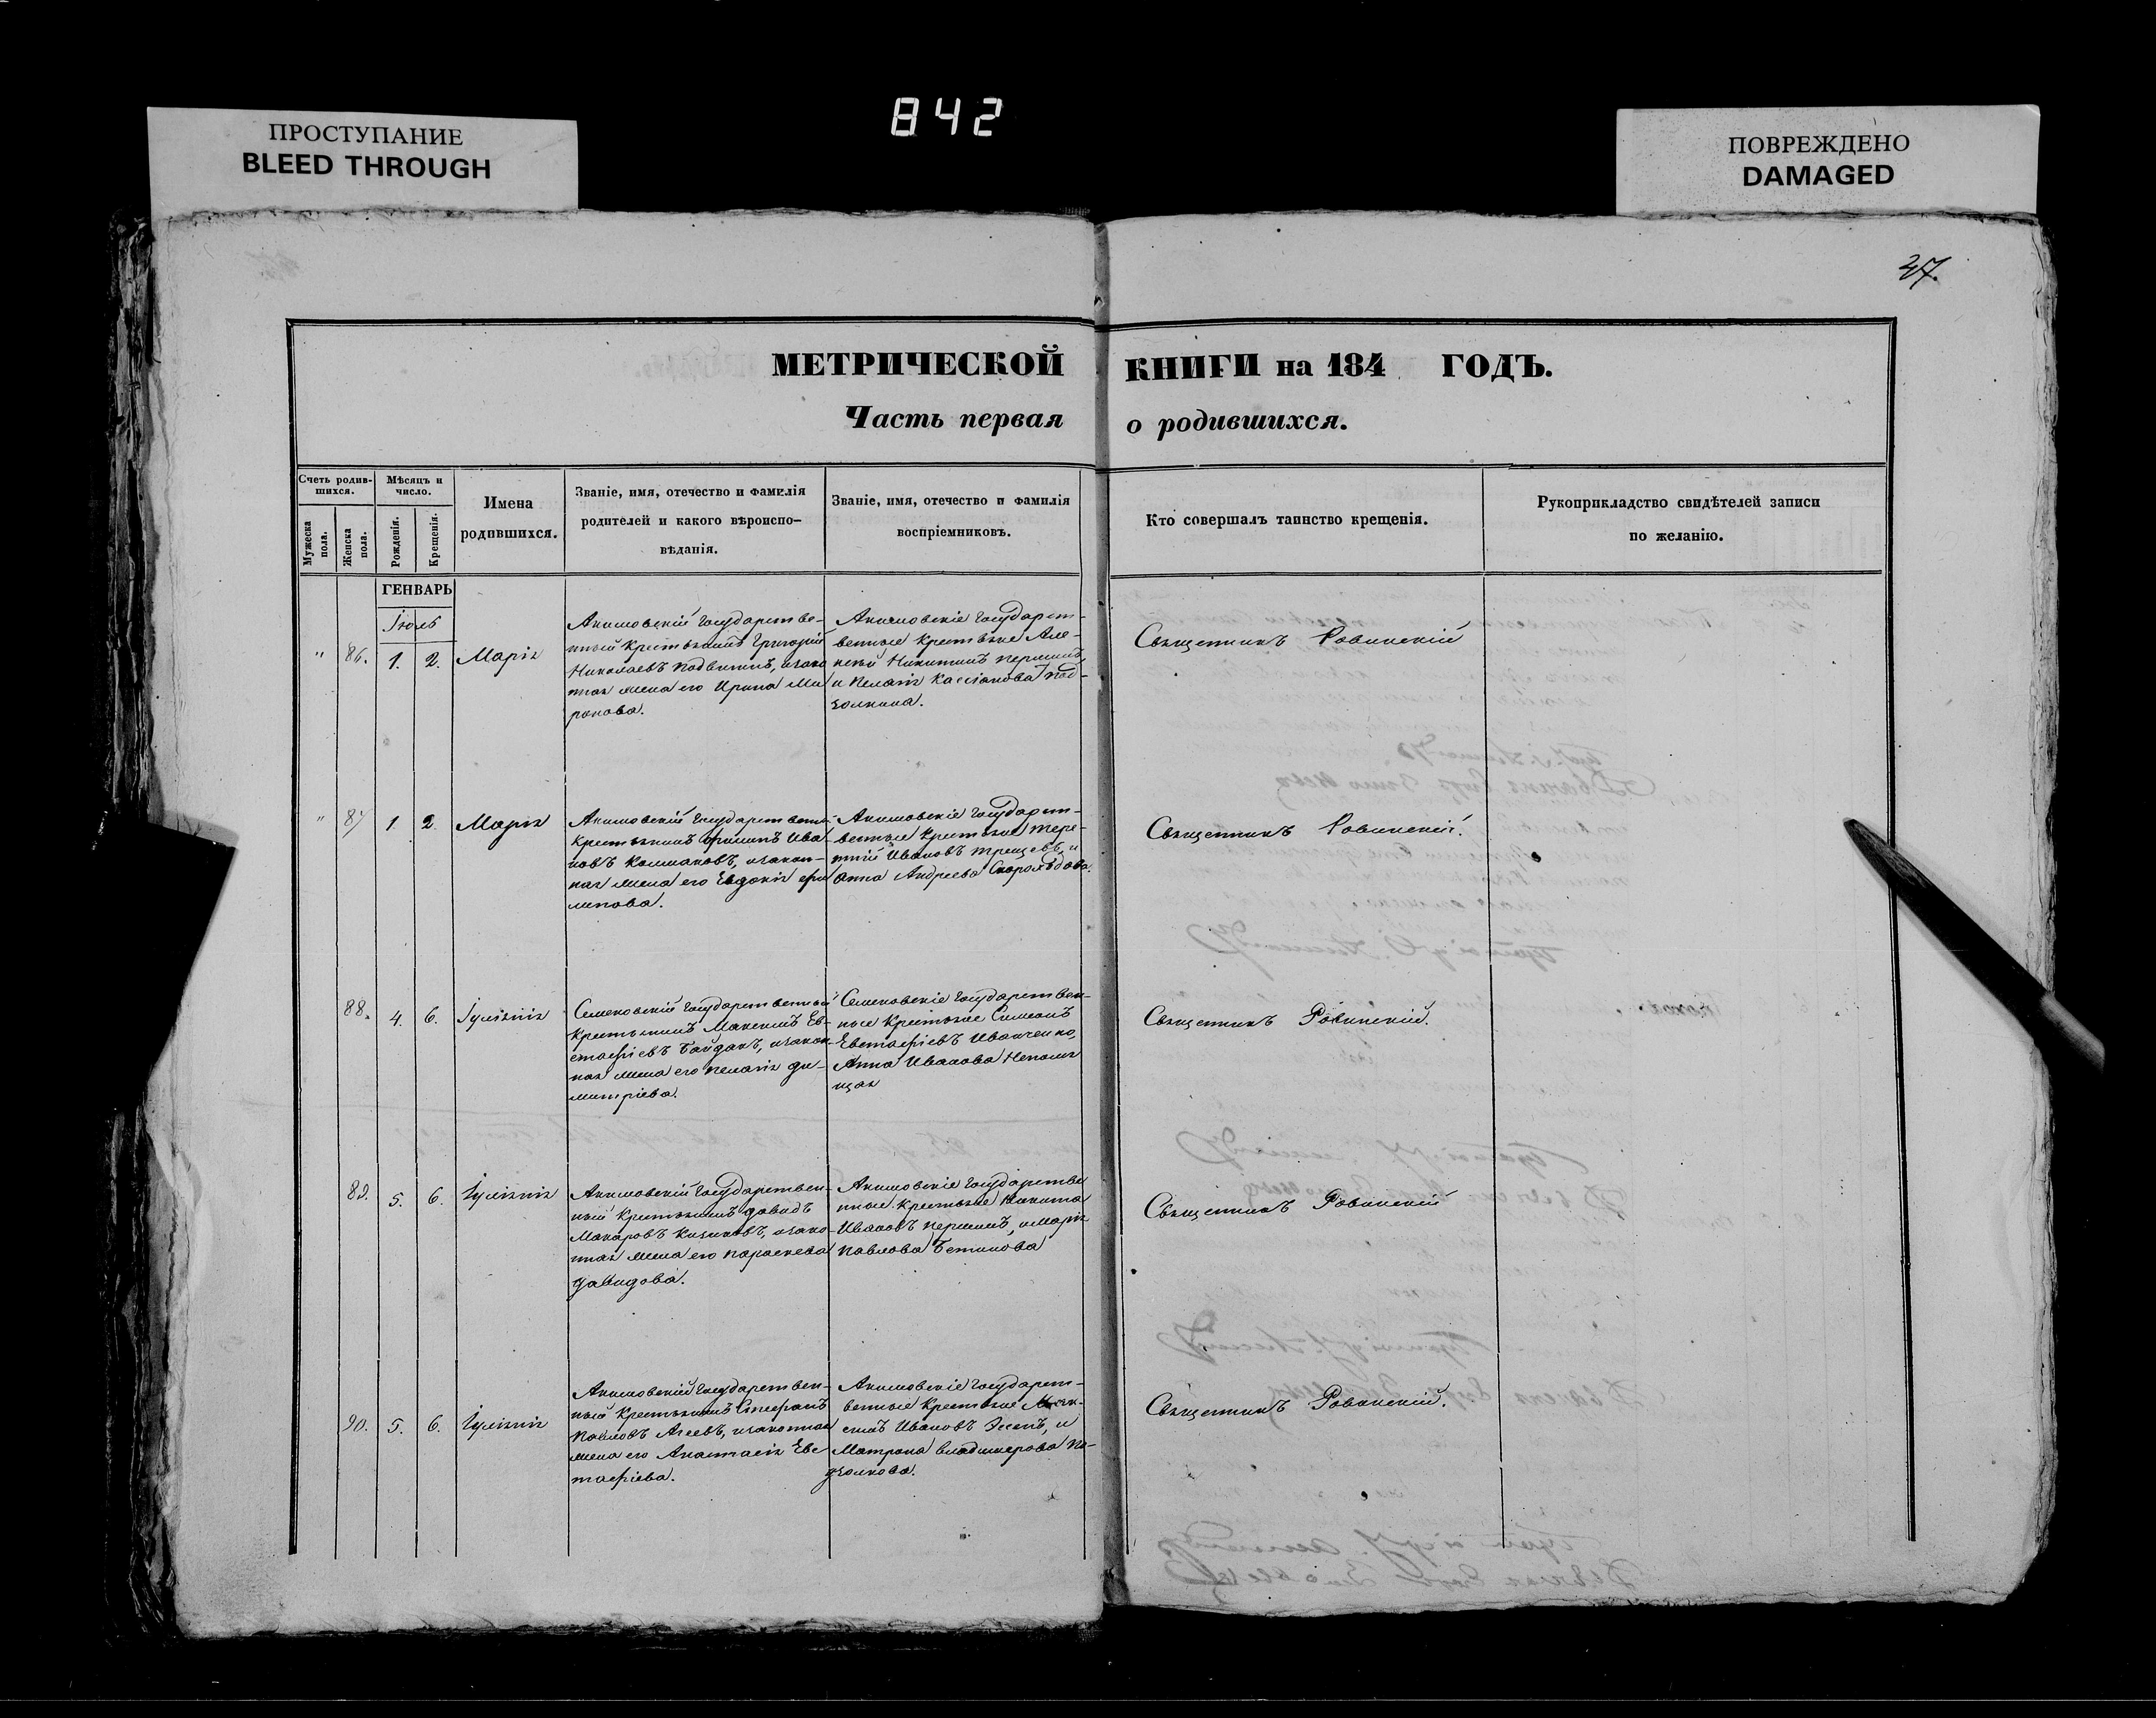 842
ПРОСТУПАНИЕ
BLEED THROUGH
ПОВРЕЖДЕНО
DAMAGED
37.
МЕТРИЧЕСКОЙ КНИГИ на 184 ГОДЪ.
Часть первая о родившихся.
Счетъ родив-
шихся.
Мужеска
пола.
Женска
пола.
Мѣсяцъ и
число.
Рожденія.
Крещенія.
Имена
родившихся.
Званіе, имя, отечество и фамилія
родителей и какого вѣроиспо-
вѣданія.
Званіе, имя, отечество и фамилія
воспріемниковъ.
Кто совершалъ таинство крещенія.
Рукоприкладство свидѣтелей записи
по желанію.
ГЕНВАРЬ
Іюль
" 86. 1. 2. Марія
Акимовскій Государстве-
нный Крестьянинъ Григорій
Николаевъ Подвитинъ, изако
ная жена его Ирина Ми
ронова.
Акимовскіе Государст-
венные Крестьяне Але-
ксѣй Никитинъ Першинъ,
и Пелагія Кассіанова Под-
золкина.
Священникъ Равинскій
" 87 1. 2. Марія
Акимовскій Государственн
Крестьянинъ Филипъ Ива
новъ Колмаковъ, изакон-
ная жена его Евдокія Фи
липова.
Акимовскіе Государст-
венные Крестьяне Тере-
нтій Ивановъ Трещевъ, и
Анна Андреева Скороѣдова.
Священникъ Равинскій.
88. 4. 6. Іуліянія
Семеновскій Государственный
Крестьянинъ Максимъ Ев-
стафіевъ Байдакъ, изакон-
ная жена его Пелагія Ди-
митріева.
Семеновскіе Государствен-
ные Крестьяне Симеонъ
Евстафіевъ Иванченко,
Анна Иванова Непомя
щая
Священникъ Равинскій.
89. 5. 6. Іуліянія
Акимовскій Государствен-
ный Крестьянинъ Давидъ
Макаровъ Кизиковъ, изако-
нная жена его Параскева
Давидова.
Акимовскіе Государстве
нные Крестьяне Никита
Ивановъ Першинъ, и Марія
Павлова Бетинова
Священникъ Равинскій
90. 5. 6. Іуліянія
Акимовскій Государствен-
ный Крестьянинъ Стефанъ
Павловъ Агеевъ, изаконная
жена его Анастасія Евс
тафіева.
Акимовскіе Государст-
венные Крестьяне Мак-
симъ Ивановъ и
Матрона Владимерова По-
дзолкова.
Священникъ Равинскій.